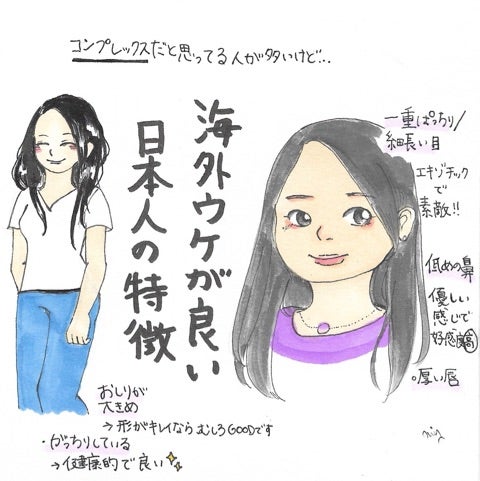 コンプレックスだと思ってる人が多いけど…
海外ウケが良い
日本人の特徴
一重ぱっちり/
細長い目
エキゾチック
で
素敵!!
低めの鼻
優しい
感じで
好感度高
○厚い唇
おしりが
大きめ
→形がキレイならむしろGOODです
・がっちりしている
→健康的で良い